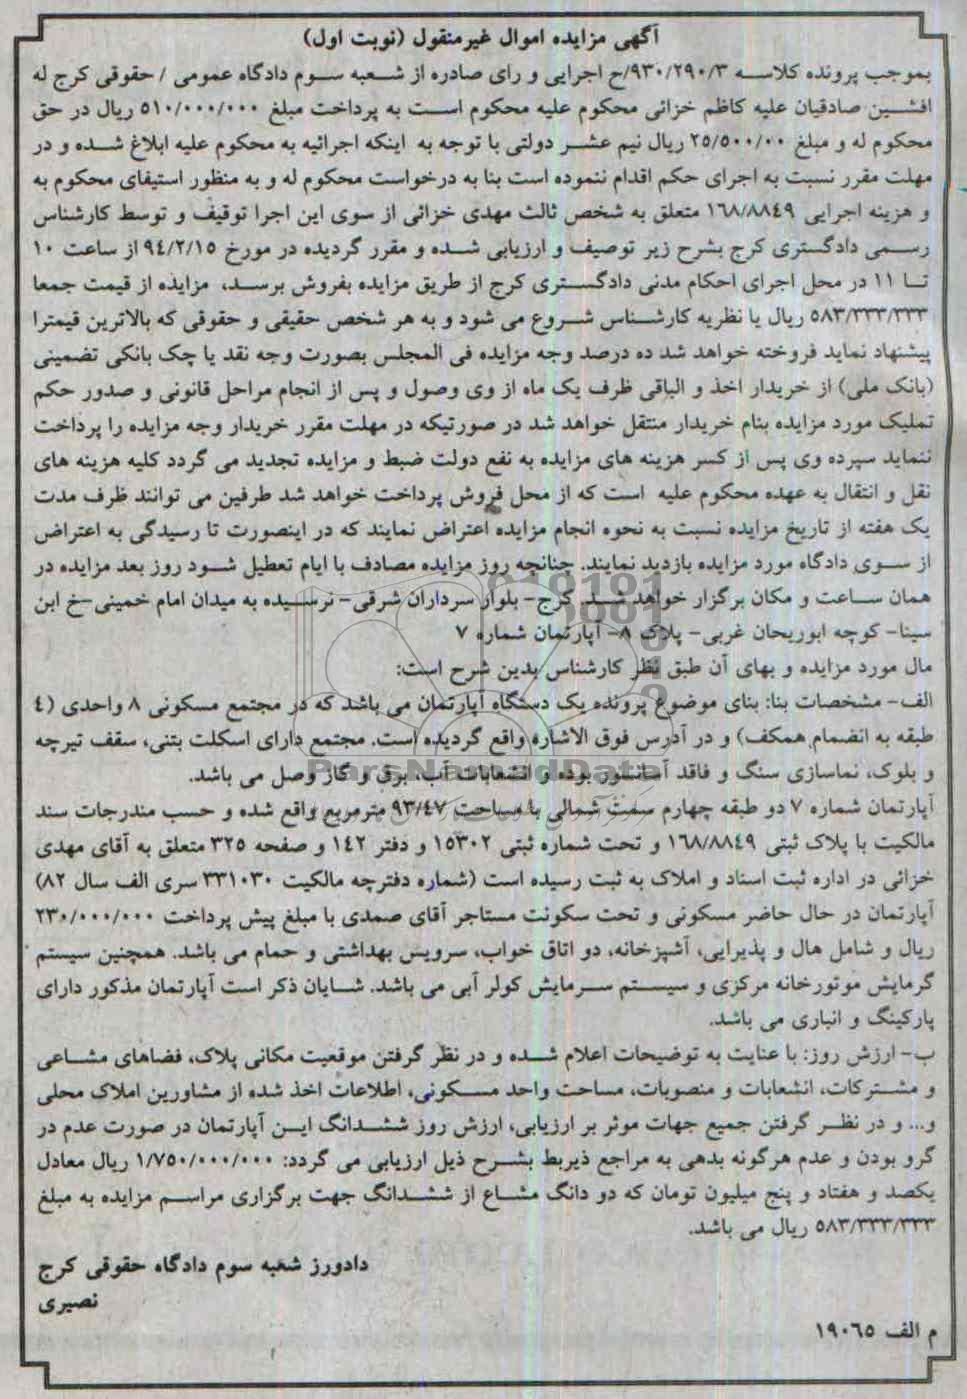 آگهی مزایده اموال غیرمنقول (نوبت اول)
بموجب پرونده کلاسه ۹۳۰/۲۹۰/۳/ح اجرایی و رای صادره از شعبه سوم دادگاه عمومی / حقوقی کرج له
افشین صادقیان علیه کاظم خزائی محکوم علیه محکوم است به پرداخت مبلغ ۵۱۰/۰۰۰/۰۰۰ ریال در حق
محکوم له و مبلغ ۲۵/۵۰۰/۰۰ ریال نیم عشر دولتی با توجه به اینکه اجرائیه به محکوم علیه ابلاغ شده و در
مهلت مقرر نسبت به اجرای حکم اقدام ننموده است بنا به درخواست محکوم له و به منظور استیفای محکوم به
و هزینه اجرایی ۱۶۸/۸۸۴۹ متعلق به شخص ثالث مهدی خزائی از سوی این اجرا توقیف و توسط کارشناس
رسمی دادگستری کرج بشرح زیر توصیف و ارزیابی شده و مقرر گردیده در مورخ ۹۴/۲/۱۵ از ساعت ۱۰
تا ۱۱ در محل اجرای احکام مدنی دادگستری کرج از طریق مزایده بفروش برسد، مزایده از قیمت جمعا
۵۸۳/۳۳۳/۳۳۳ ریال یا نظریه کارشناس شروع می شود و به هر شخص حقیقی و حقوقی که بالاترین قیمترا
پیشنهاد نماید فروخته خواهد شد ده درصد وجه مزایده فی المجلس بصورت وجه نقد یا چک بانکی تضمینی
(بانک ملی) از خریدار اخذ و الباقی ظرف یک ماه از وی وصول و پس از انجام مراحل قانونی و صدور حکم
تملیک مورد مزایده بنام خریدار منتقل خواهد شد در صورتیکه در مهلت مقرر خریدار وجه مزایده را پرداخت
ننماید سپرده وی پس از کسر هزینه های مزایده به نفع دولت ضبط و مزایده تجدید می گردد کلیه هزینه های
نقل و انتقال به عهده محکوم علیه است که از محل فروش پرداخت خواهد شد طرفین می توانند ظرف مدت
یک هفته از تاریخ مزایده نسبت به نحوه انجام مزایده اعتراض نمایند که در اینصورت تا رسیدگی به اعتراض
از سوی دادگاه مورد مزایده بازدید نمایند. چنانچه روز مزایده مصادف با ایام تعطیل شود روز بعد مزایده در
همان ساعت و مکان برگزار خواهد شد. کرج- بلوار سرداران شرقی- نرسیده به میدان امام خمینی-خ ابن
سینا- کوچه ابوریحان غربی- پلاک ۸- آپارتمان شماره ۷
مال مورد مزایده و بهای آن طبق نظر کارشناس بدین شرح است:
الف- مشخصات بنا: بنای موضوع پرونده یک دستگاه آپارتمان می باشد که در مجتمع مسکونی ۸ واحدی (۴
طبقه به انضمام همکف) و در آدرس فوق الاشاره واقع گردیده است. مجتمع دارای اسکلت بتنی، سقف تیرچه
و بلوک، نماسازی سنگ و فاقد آسانسور بوده و انشعابات آب، برق و گاز وصل می باشد.
ParsNamadData
آپارتمان شماره ۷ دو طبقه چهارم سمت شمالی با مساحت ۹۳/۴۷ مترمربع واقع شده و حسب مندرجات سند
مالکیت با پلاک ثبتی ۱۶۸/۸۸۴۹ و تحت شماره ثبتی ۱۵۳۰۲ و دفتر ۱۴۲ و صفحه ۳۲۵ متعلق به آقای مهدی
خزائی در اداره ثبت اسناد و املاک به ثبت رسیده است (شماره دفترچه مالکیت ۳۳۱۰۳۰ سری الف سال ۸۲)
آپارتمان در حال حاضر مسکونی و تحت سکونت مستاجر آقای صمدی با مبلغ پیش پرداخت ۲۳۰/۰۰۰/۰۰۰
ریال و شامل هال و پذیرایی، آشپزخانه، دو اتاق خواب، سرویس بهداشتی و حمام می باشد. همچنین سیستم
گرمایش موتورخانه مرکزی و سیستم سرمایش کولر آبی می باشد. شایان ذکر است آپارتمان مذکور دارای
پارکینگ و انباری می باشد.
ب- ارزش روز: با عنایت به توضیحات اعلام شده و در نظر گرفتن موقعیت مکانی پلاک، فضاهای مشاعی
و مشترکات، انشعابات و منصوبات، مساحت واحد مسکونی، اطلاعات اخذ شده از مشاورین املاک محلی
و... و در نظر گرفتن جمیع جهات موثر بر ارزیابی، ارزش روز ششدانگ این آپارتمان در صورت عدم در
گرو بودن و عدم هرگونه بدهی به مراجع ذیربط بشرح ذیل ارزیابی می گردد: ۱/۷۵۰/۰۰۰/۰۰۰ ریال معادل
یکصد و هفتاد و پنج میلیون تومان که دو دانگ مشاع از ششدانگ جهت برگزاری مراسم مزایده به مبلغ
۵۸۳/۳۳۳/۳۳۳ ریال می باشد.
دادورز شعبه سوم دادگاه حقوقی کرج
نصیری
م الف ۱۹۰۶۵